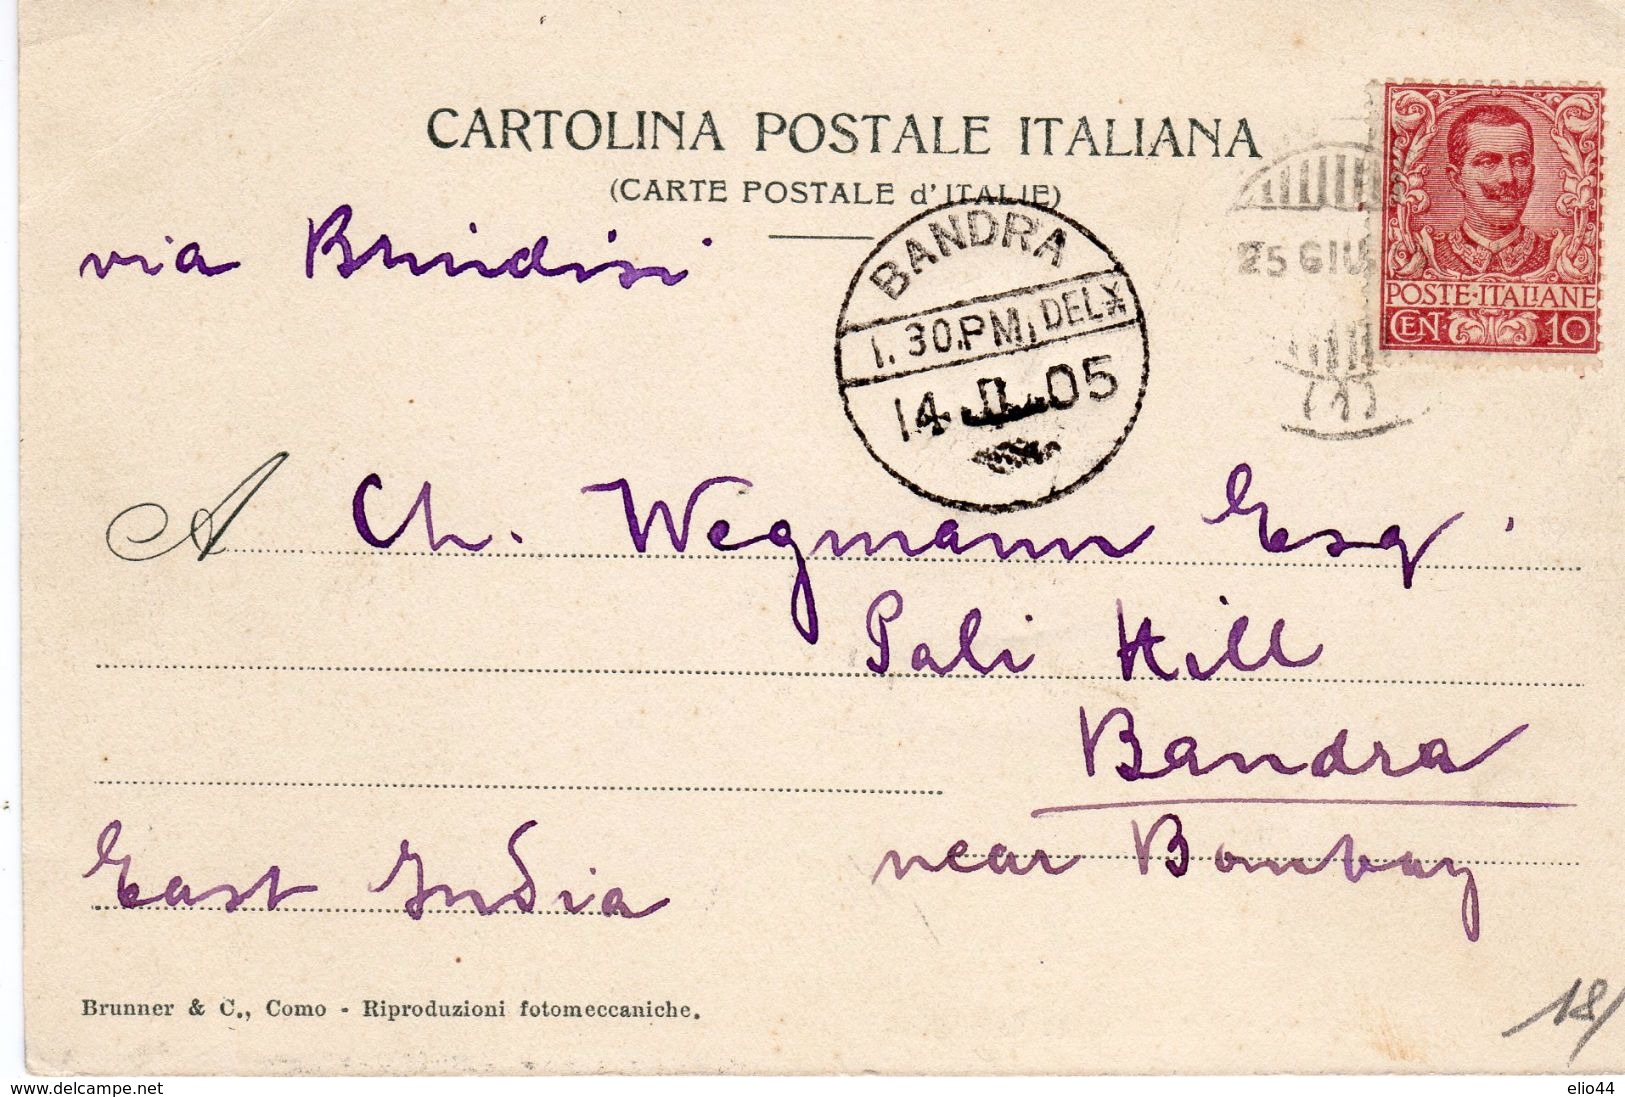 CARTOLINA POSTALE ITALIANA
(CARTE POSTALE d'ITALIE)
via Brindisi
BANDRA
1.30.PM. DEL
14 05
25 GIU
POSTE·ITALIANE
CEN· 10
A Ch. Wegmann Esq.
Pali Hill
Bandra
near Bombay
East India
Brunner & C., Como - Riproduzioni fotomeccaniche.
18/
www.delcampe.net
elio44